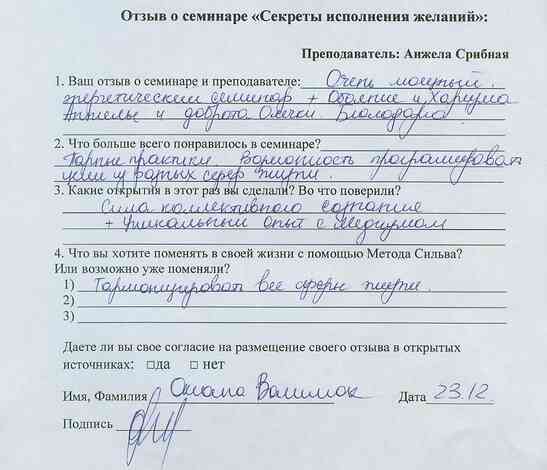 Отзыв о семинаре «Секреты исполнения желаний»:
Преподаватель: Анжела Срибная
1. Ваш отзыв о семинаре и преподавателе: Очень мощный
энергетический семинар + Обаяние и Харизма
Анжелы и доброта Олечки. Благодарна.
2. Что больше всего понравилось в семинаре?
Парные практики. Возможность программировать
цели в разных сферах жизни.
3. Какие открытия в этот раз вы сделали? Во что поверили?
Сила коллективного сознания
+ Уникальный опыт с Медиумом
4. Что вы хотите поменять в своей жизни с помощью Метода Сильва?
Или возможно уже поменяли?
1) Гармонизировать все сферы жизни.
2)
3)
Даете ли вы свое согласие на размещение своего отзыва в открытых
источниках: □да □ нет
Имя, Фамилия Оксана Дата 23.12.
Подпись